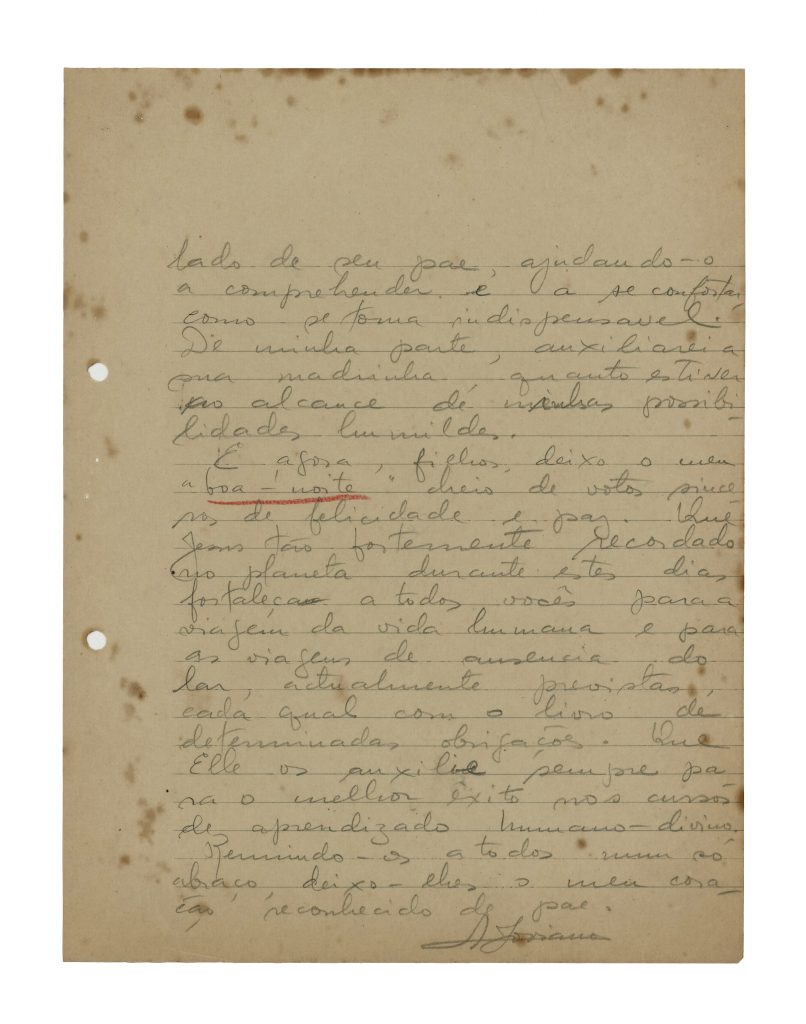 lado de seu pae, ajudando-o
a comprehender e a se confortar,
como se torna indispensavel.
De minha parte, auxiliarei a
sua madrinha, quanto estiver
ao alcance de minhas possibi-
lidades humildes.
E agora, filhos, deixo o meu
"boa-noite" cheio de votos since-
ros de felicidade e paz. Que
Jesus tão fortemente recordado
no planeta durante estes dias
fortaleça a todos vocês para a
viagem da vida humana e para
as viagens de ausencia do
lar, actualmente previstas,
cada qual com o livro de
determinadas obrigações. Que
Elle os auxilie sempre pa-
ra o melhor êxito nos cursos
de aprendizado humano-divino.
Reunindo-os a todos num só
abraço, deixo-lhes o meu cora-
ção reconhecido de pae.
A Joviano